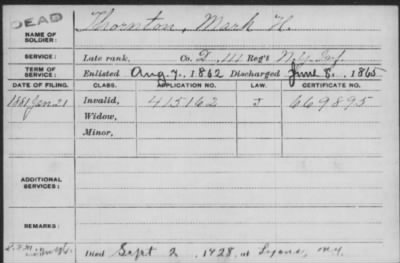 DEAD
NAME OF SOLDIER: Thornton, Mark H.
SERVICE: Late rank, Co. D, 111 Reg't N.Y. Inf.
TERM OF SERVICE: Enlisted Aug. 7, 1862 Discharged June 5, 1865
DATE OF FILING. CLASS. APPLICATION NO. LAW. CERTIFICATE NO.
1881 Jan 21 Invalid, 415162 J 669895
Widow,
Minor,
ADDITIONAL SERVICES:
REMARKS:
Died Sept 2, 1928, at Lyons, N.Y.